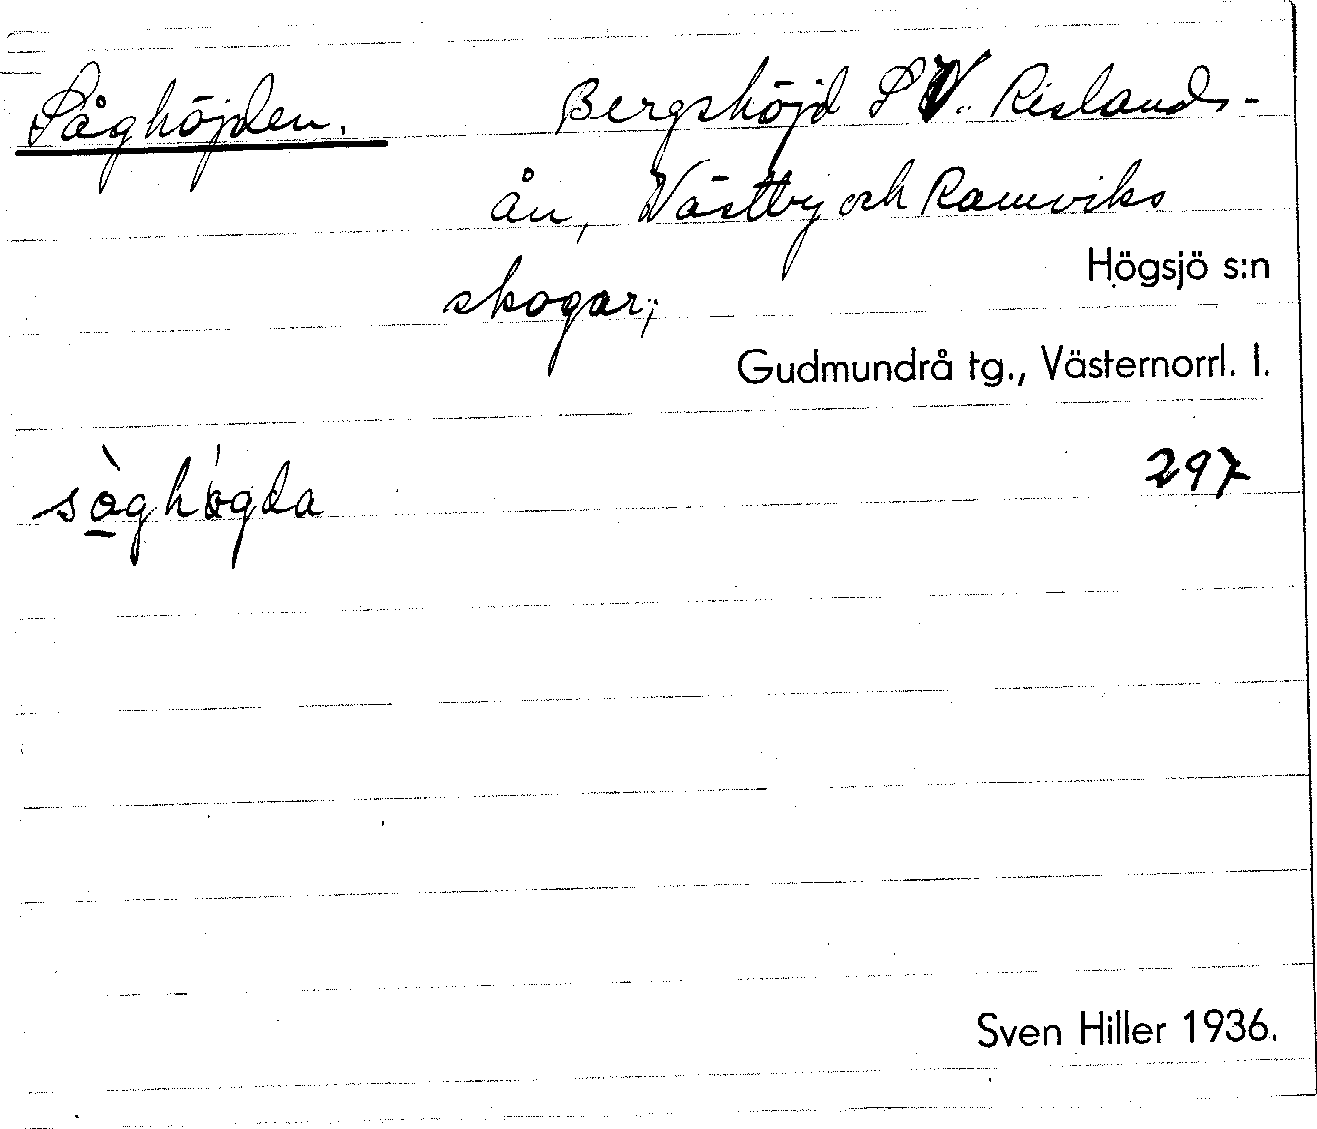 Såghöjden. Bergshöjd SV. Rislands-
ån, Västby och Ramviks
skogar;
Högsjö s:n
Gudmundrå tg., Västernorrl. l.
297
sò̱ghögda
Sven Hiller 1936.